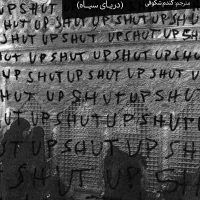 مترجم: گندم شکوفی
(دریای سیاه)
UP SHUT
HUT UP SHUT UP SHUT UP SHU
UT UP SHUT UP SHUT UP SH
UP SHUT UP SHUT UP SHUT UP
UP SHUT UP SHUT UP SHUT
HUT UP SHUT UP SHUT UP
UT UP SHUT UP SHUT U
SHUT UP SHUT UP SHUT
SHUT UP SHUT UP